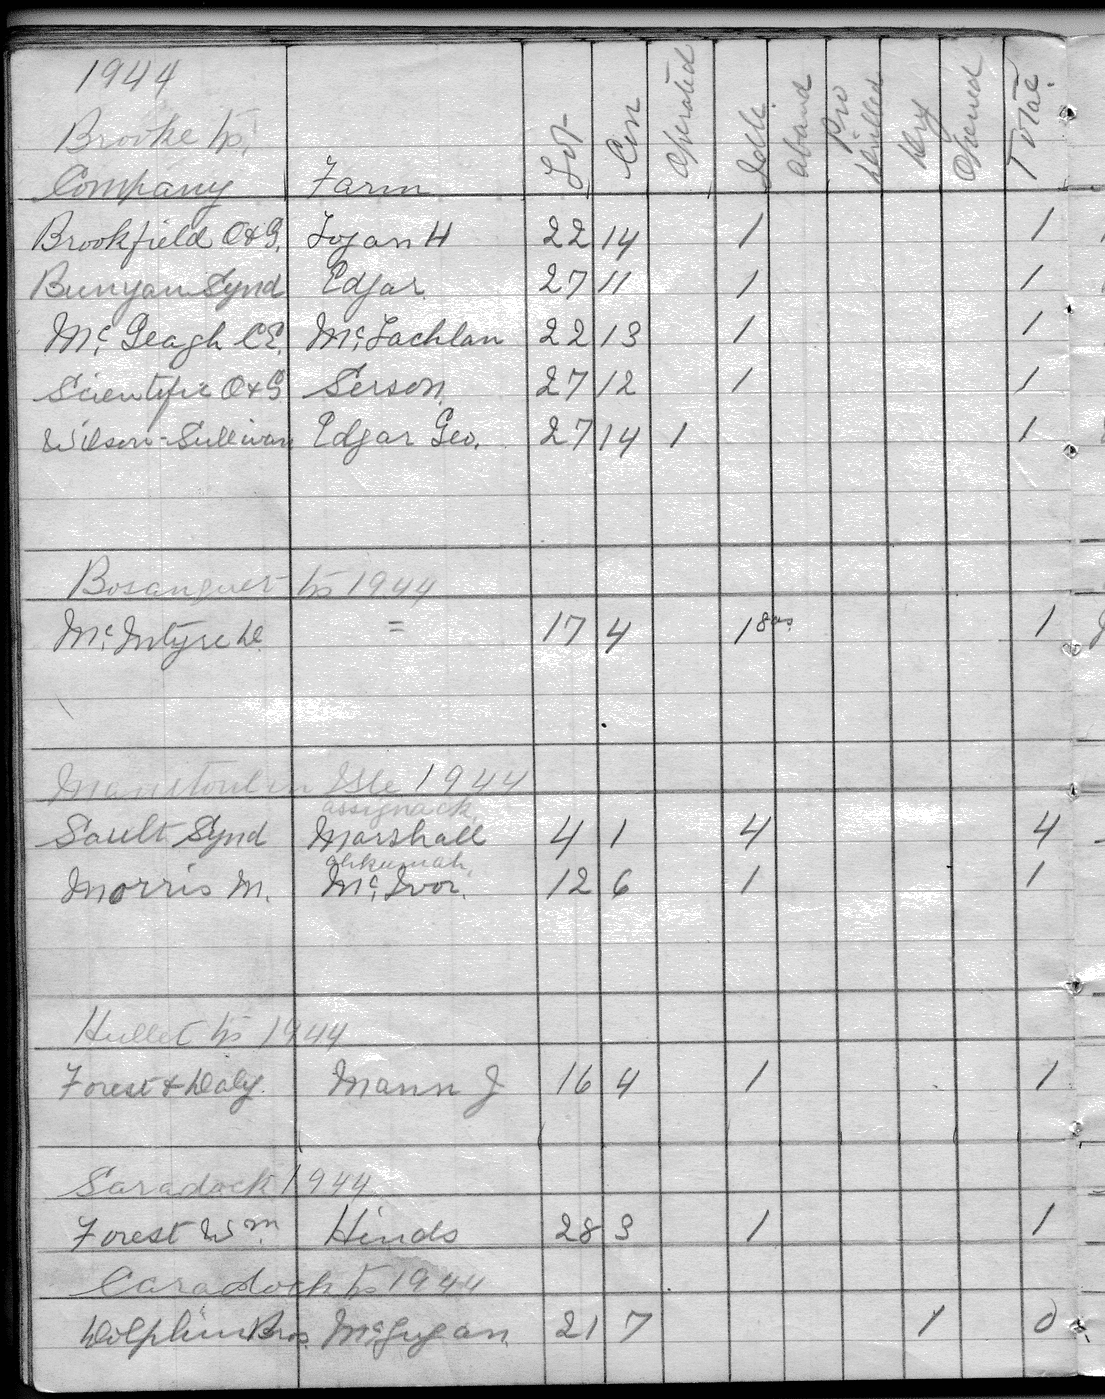 1944
Brooke tp.
Company Farm Lot Con Operated Idle aband Pro Drilled Dry Opened Total
Brookfield O&G. Logan H 22 14 1 1
Bunyan Synd Edgar 27 11 1 1
Mc. Geagh C.E. Mc. Lachlan 22 13 1 1
Scientific O&G Serson. 27 12 1 1
Wilson-Sullivan Edgar Geo. 27 14 1 1
Bosanquet tp 1944
Mc. Intyre D. = 17 4 1 gas. 1
Manitoulin Isle 1944
assignack.
Sault Synd Marshall 4 1 4 4
Morris M. Mc. Ivor. 12 6 1 1
Hullet tp 1944
Forest & Daly. Mann J 16 4 1 1
Saradock 1944
Forest Wm. Hinds 28 3 1 1
Caradock tp 1944
Dolphin Bros. McGugan. 21 7 1 0